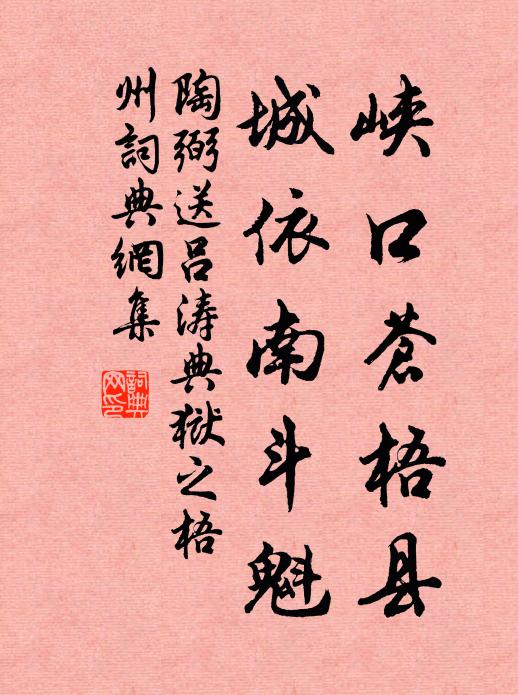 峡口苍梧县
城依南斗魁
陶弼送吕涛典狱之梧
州詞典網集
詞典
网印